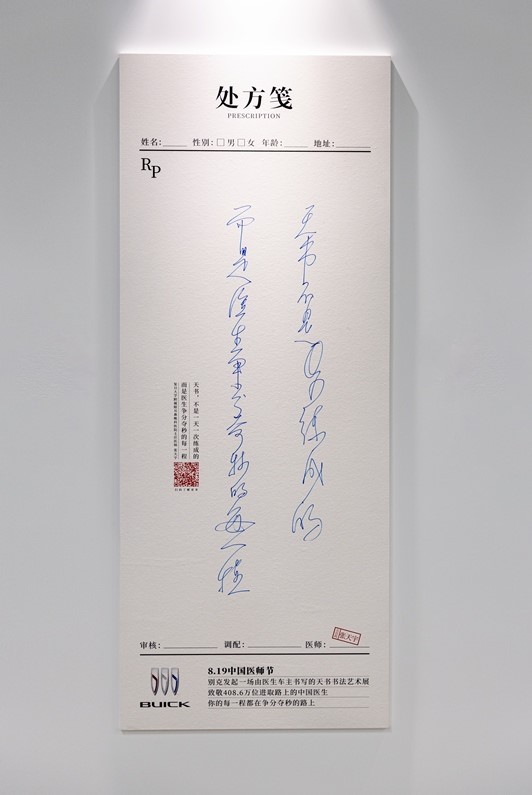 处方笺
PRESCRIPTION
姓名:______ 性别:□男□女 年龄:______ 地址:______
RP
天书不是一天一次练成的
而是医生争分夺秒的每一程
天书,不是一天一次练成的
而是医生争分夺秒的每一程
审核:______ 调配:______ 医师:______
张天宇
BUICK
8.19中国医师节
别克发起一场由医生车主书写的天书书法艺术展
致敬408.6万位进取路上的中国医生
你的每一程都在争分夺秒的路上